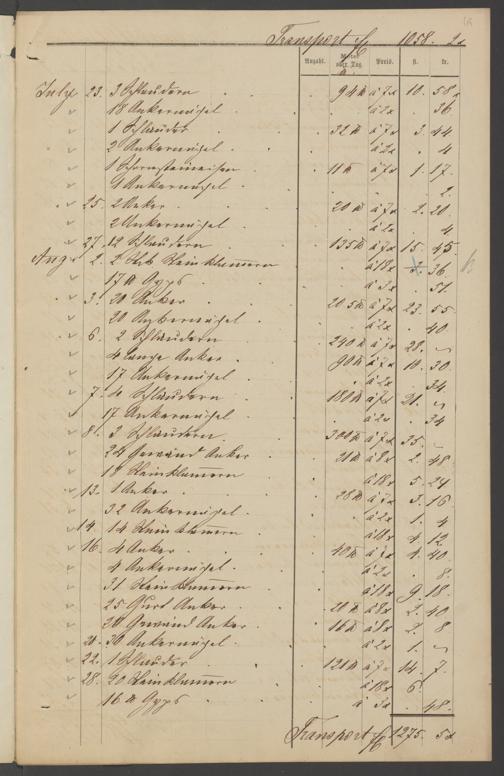 Transport fl 1058. 2x
Anzahl. Preis. fl. kr.
July 23. 3 Schlaudern 94 ℔ à 7x 10. 58
18 Ankernägel à 2x . 36
1 Schlauder 32 ℔ à 7x 3. 44
2 Ankernägel à 2x . 4
1 Schornsteineisen 11 ℔ à 7x 1. 17
1 Ankernagel . 2
25. 2 Anker 20 ℔ à 7x 2. 20
2 Ankernägel à 2x 4
27. 12 Schlaudern 135 ℔ à 7x 15. 45
Aug. 2. 2 Steinklammern à 18x . 36
17 ℔ Gyps à 3x . 51
3. 20 Anker 205 ℔ à 7x 23. 55
20 Ankernägel à 2x . 40
6. 2 Schlaudern 240 ℔ à 7x 28. –
4 Lange Anker 90 ℔ à 7x 10. 30
17 Ankernägel à 2x . 34
7. 4 Schlaudern 180 ℔ à 7x 21. –
17 Ankernägel à 2x . 34
8. 3 Schlaudern 300 ℔ à 7x 35. –
24 Gewänd Anker 21 ℔ à 8x 2. 48
18 Steinklammern à 18x 5. 24
13. 1 Anker 28 ℔ à 7x 3. 16
32 Ankernägel à 2x 1. 4
14. 14 Steinklammern à 18x 4. 12
16. 4 Anker 40 ℔ à 7x 4. 40
4 Ankernägel à 2x . 8
31 Steinklammern à 18x 9. 18
25 Gurt Anker 20 ℔ à 8x 2. 40
20 Gewänd Anker 16 ℔ à 8x 2. 8
20. 30 Ankernägel à 2x 1. –
22. 1 Schlauder 121 ℔ à 7x 14. 7
28. 20 Steinklammern à 18x 6
16 ℔ Gyps à 3x . 48
Transport fl 1275. 5x